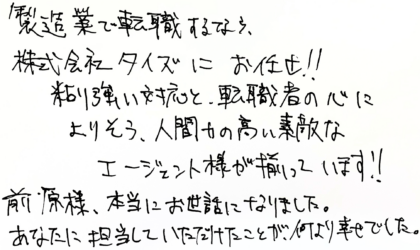 製造業で転職するなら、
株式会社タイズにお任せ!!
粘り強い対応と、転職者の心に
よりそう、人間力の高い素敵な
エージェント様が揃っています!!
前原様、本当にお世話になりました。
あなたに担当していただけたことが何より幸せでした。